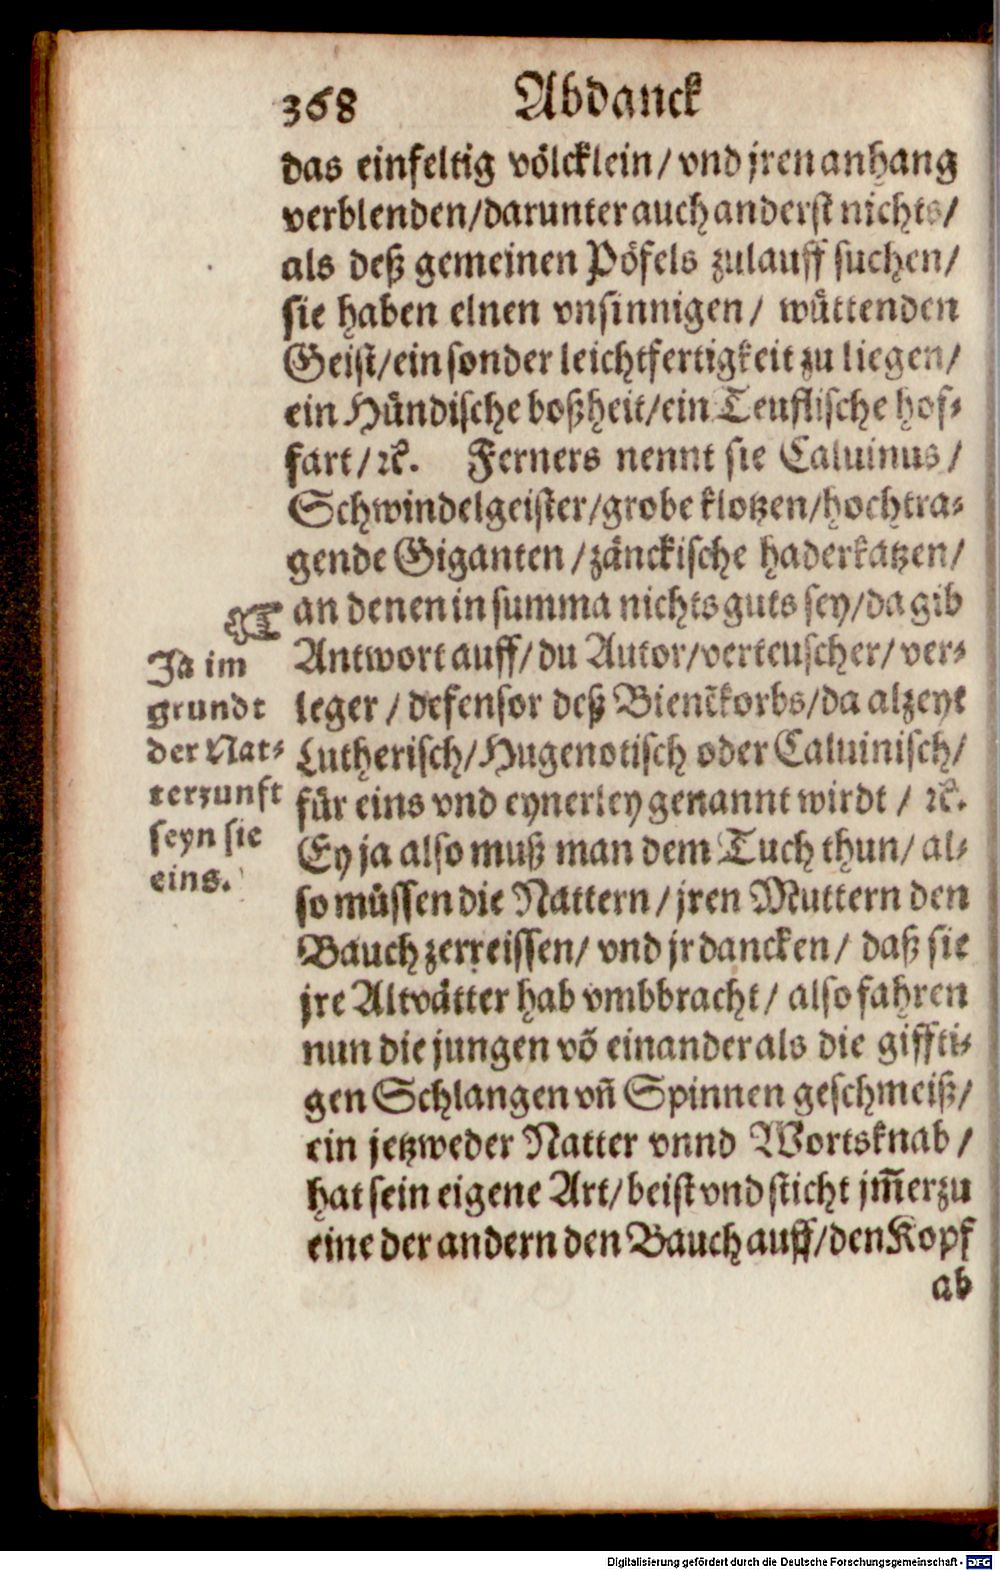 368 Abdanck
das einfeltig völcklein/ vnd jren anhang
verblenden/darunter auch anderst nichts/
als deß gemeinen Pöfels zulauff suchen/
sie haben elnen vnsinnigen/ wüttenden
Geist/ein sonder leichtfertigkeit zu liegen/
ein Hündische boßheit/ein Teuflische hof-
fart/ꝛc. Ferners nennt sie Caluinus/
Schwindelgeister/grobe klotzen/hochtra-
gende Giganten/zänckische haderkatzen/
an denen in summa nichts guts sey/da gib
Antwort auff/du Autor/verteuscher/ver-
leger/defensor deß Bienẽkorbs/da alzeyt
Lutherisch/Hugenotisch oder Caluinisch/
für eins vnd eynerley genannt wirdt/ ꝛc.
Ey ja also muß man dem Tuch thun/al-
so müssen die Nattern/jren Muttern den
Bauch zerreissen/ vnd jr dancken/ daß sie
jre Altvätter hab vmbbracht/ also fahren
nun die jungen võ einander als die giffti-
gen Schlangen vñ Spinnen geschmeiß/
ein jetzweder Natter vnnd Wortsknab/
hat sein eigene Art/beist vnd sticht jm̃erzu
eine der andern den Bauch auff/den Kopf
ab
☞
Ja im
grundt
der Nat-
terzunft
seyn sie
eins.
Digitalisierung gefördert durch die Deutsche Forschungsgemeinschaft - DFG